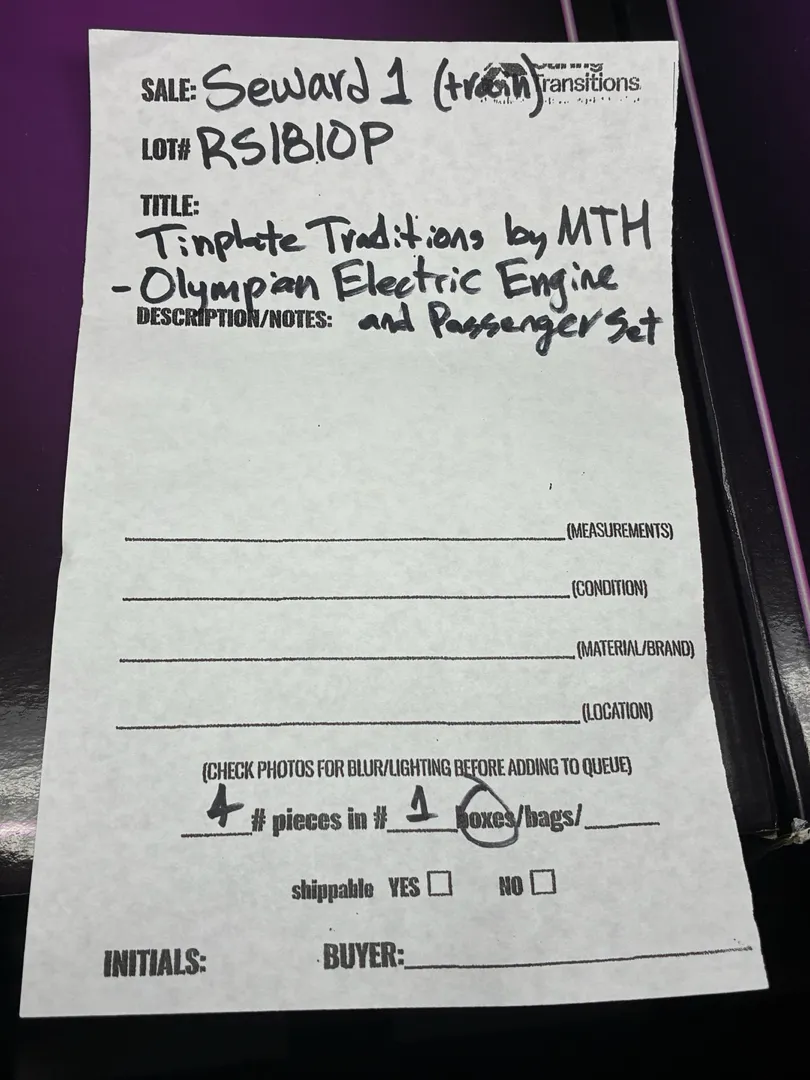 SALE: Seward 1 (train) Transitions
LOT# RS1810P
TITLE:
Tinplate Traditions by MTH
- Olympian Electric Engine
DESCRIPTION/NOTES: and Passenger Set
(MEASUREMENTS)
(CONDITION)
(MATERIAL/BRAND)
(LOCATION)
(CHECK PHOTOS FOR BLUR/LIGHTING BEFORE ADDING TO QUEUE)
4 # pieces in # 1 boxes/bags/
shippable YES NO
INITIALS: BUYER: